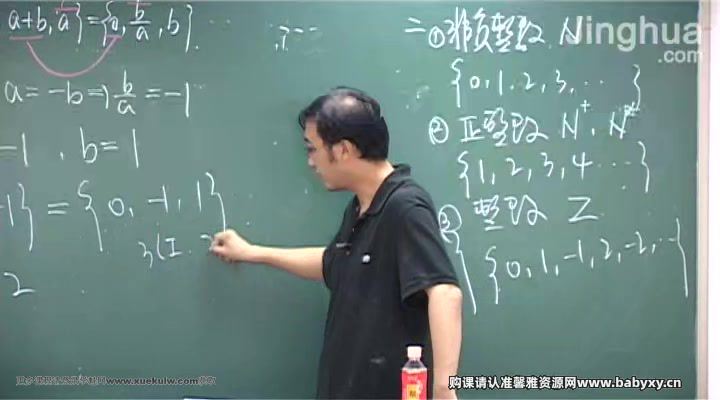 a+b, a}={0, b/a, b}
a=-b⇒b/a=-1
=1, b=1
-1}={0, -1, 1}
2
二①非负整数 N
{0,1,2,3,…}
②正整数 N⁺, N*
{1,2,3,4…}
整数 Z
{0,1,-1,2,-2,…}
Jinghua
.com
www.xuekulw.com
购课请认准馨雅资源网www.babyxy.cn